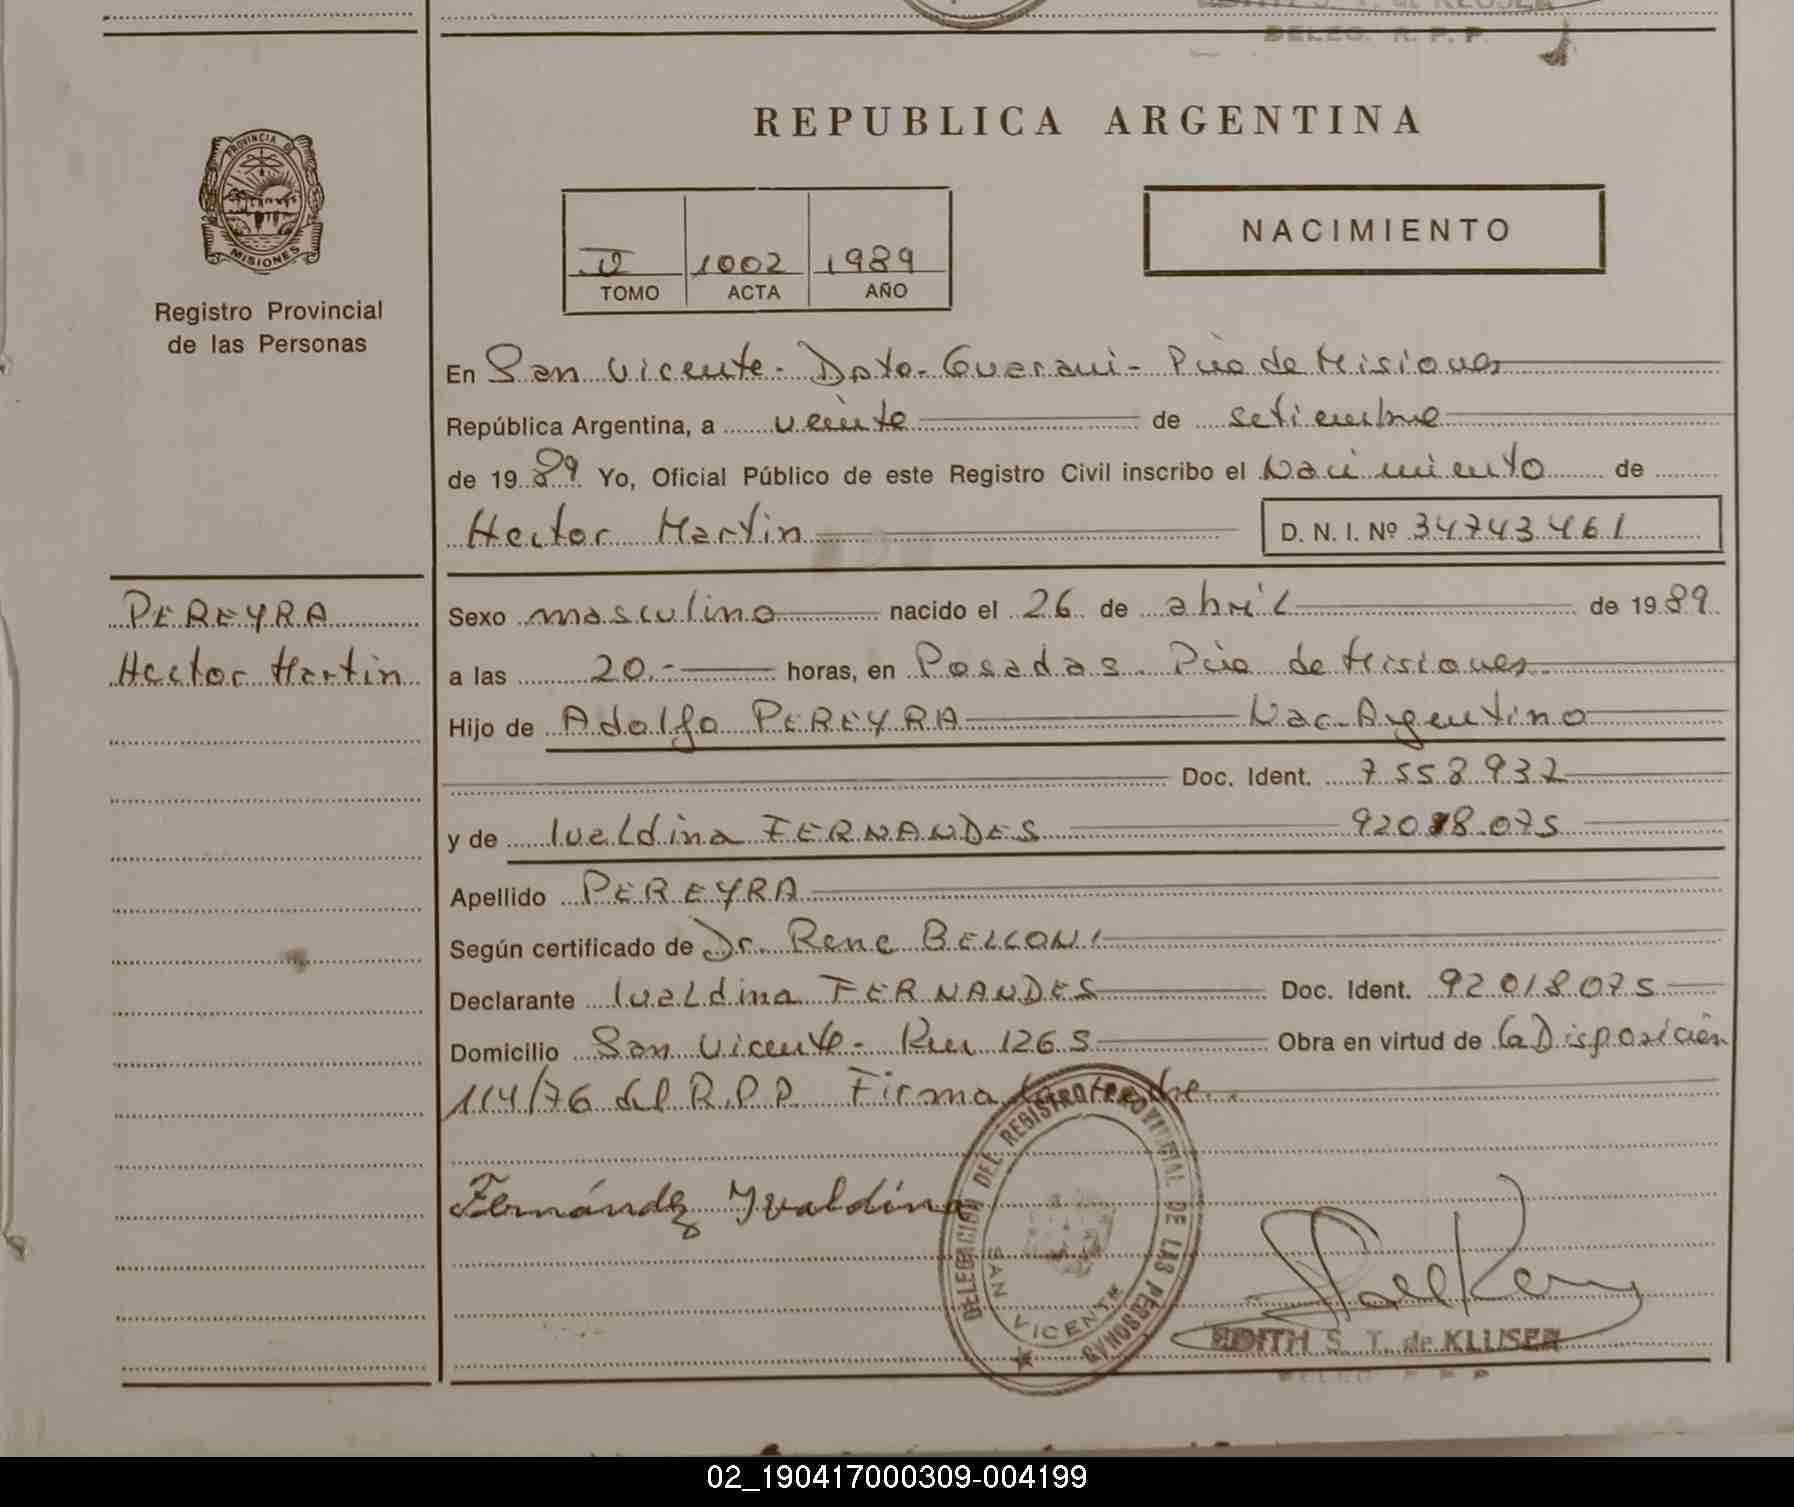 DELEG. R. P. P.
REPUBLICA ARGENTINA
PROVINCIA DE
MISIONES
Registro Provincial
de las Personas
1002 1989
TOMO ACTA AÑO
NACIMIENTO
En San Vicente - Dpto. Guarani - Pcia de Misiones
República Argentina, a veinte de setiembre
de 19 89 Yo, Oficial Público de este Registro Civil inscribo el Nacimiento de
Hector Martin D. N. I. Nº 34743461
PEREYRA
Hector Martin
Sexo masculino nacido el 26 de abril de 19 89
a las 20.- horas, en Posadas Pcia de Misiones
Hijo de Adolfo PEREYRA Nac. Argentino
Doc. Ident. 7558932
y de Ivaldina FERNANDES 92018.075
Apellido PEREYRA
Según certificado de Dr. Rene BELLONI
Declarante Ivaldina FERNANDES Doc. Ident. 92018075
Domicilio San Vicente - Km 1265 Obra en virtud de la Disposición
114/76 del R.P.P. Firma la madre.
Fernándz Yvaldina
DELEGACION DEL REGISTRO PROVINCIAL DE LAS PERSONAS
SAN VICENTE
EDITH S. T. de KLUSER
DELEG. R. P. P.
02_190417000309-004199